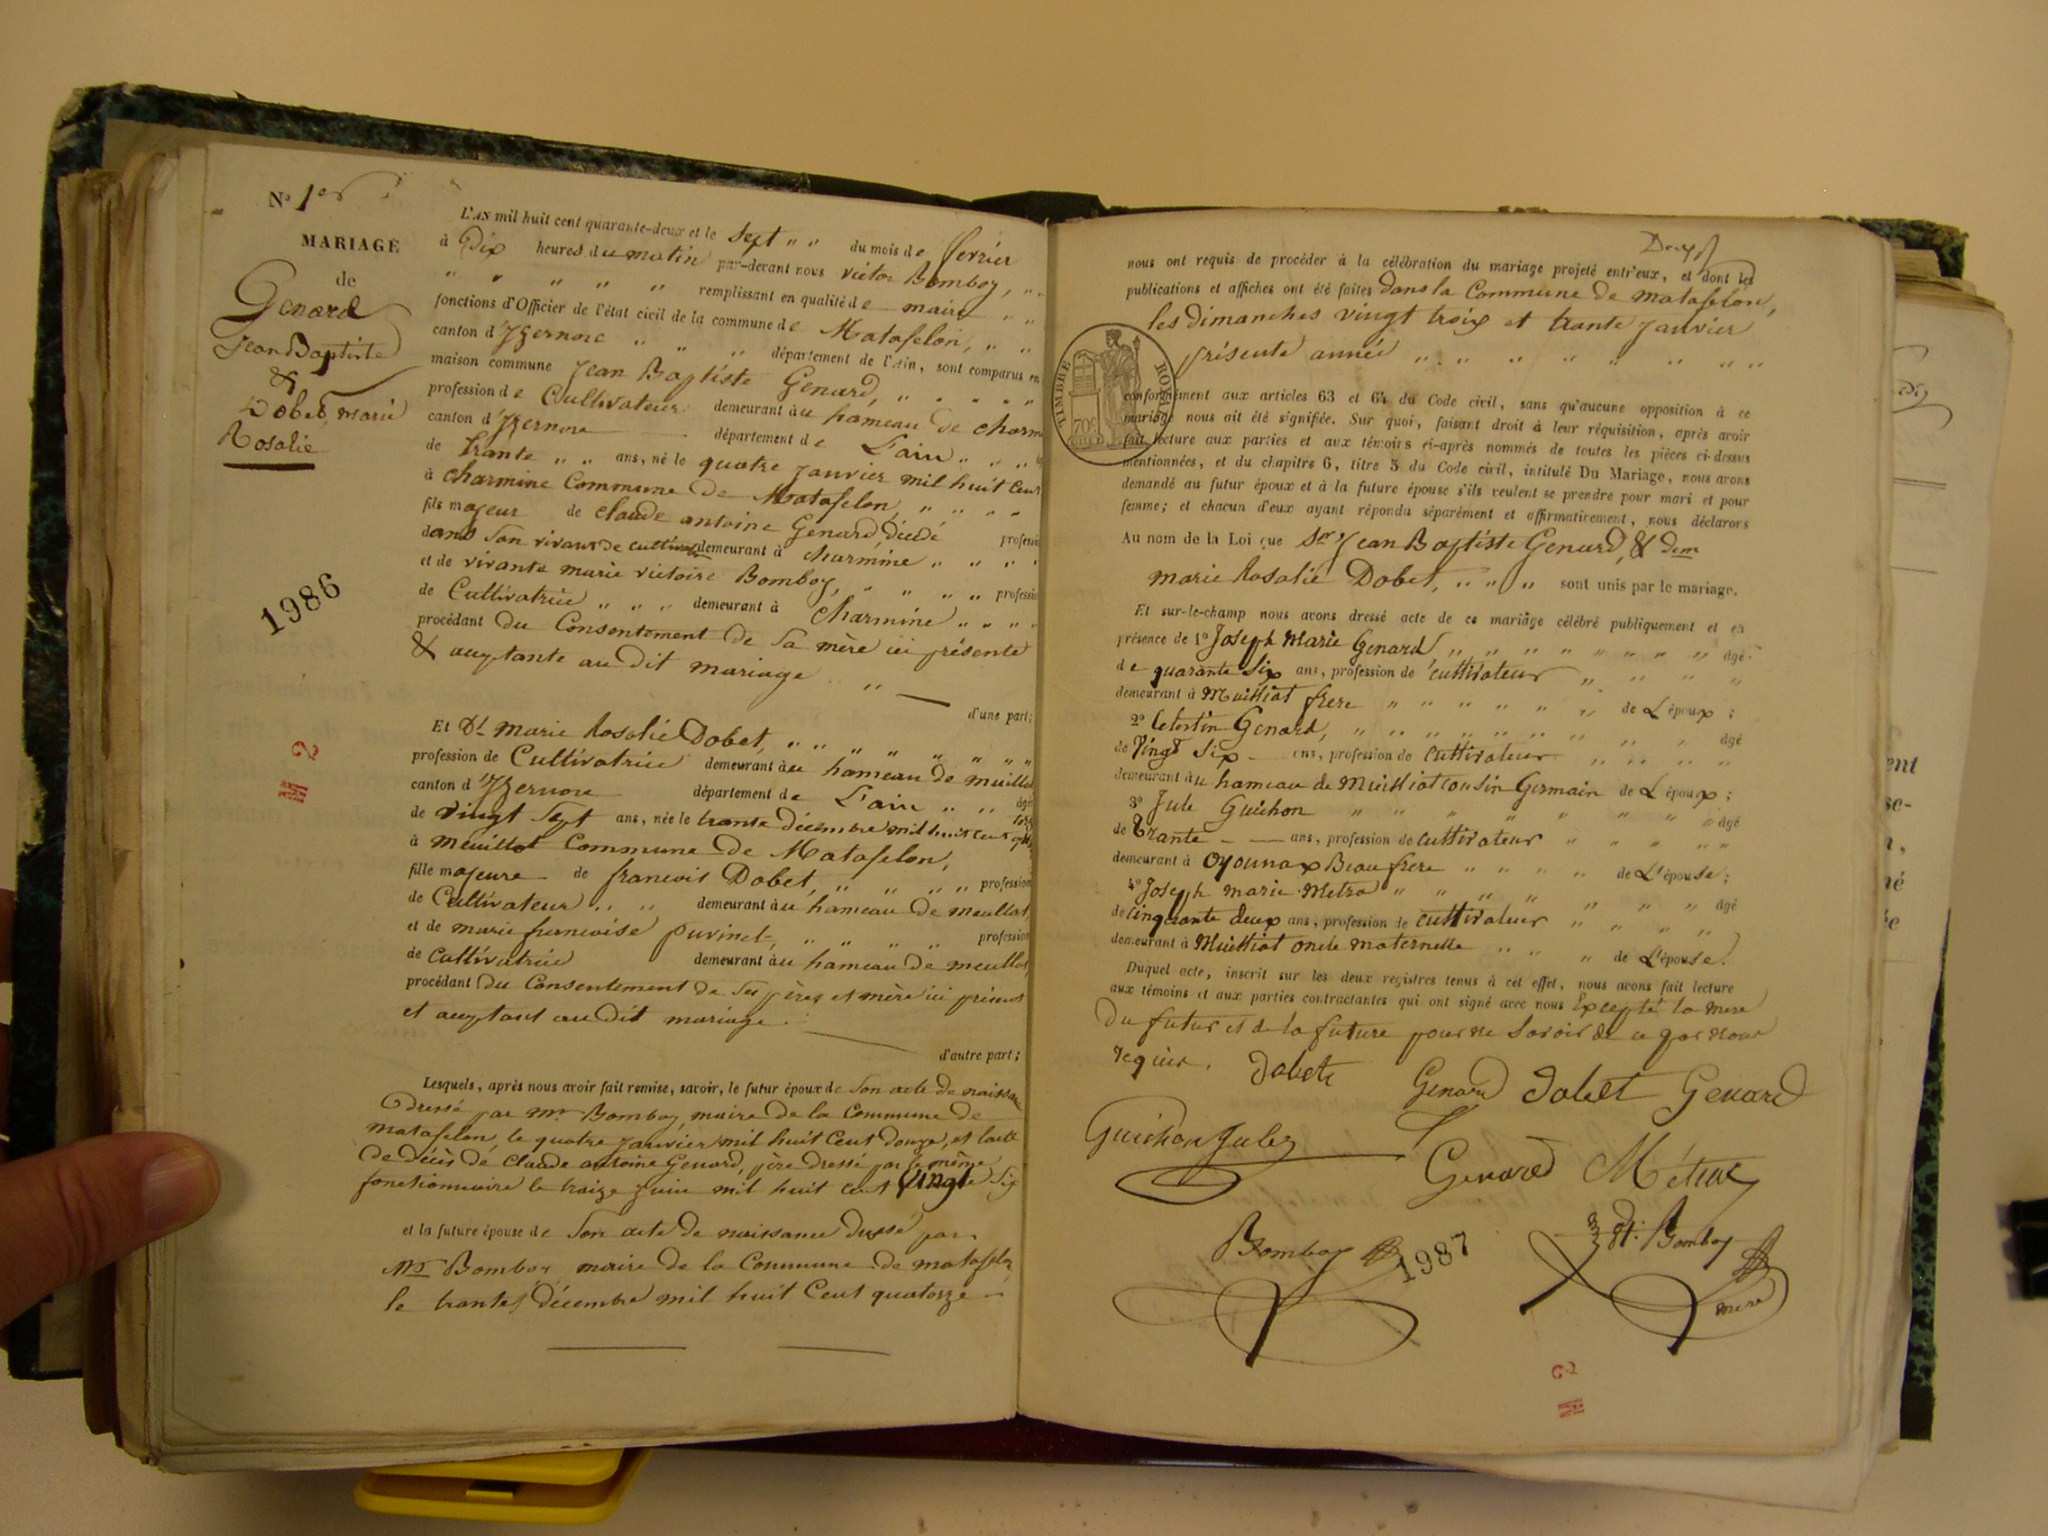 N° 1er
MARIAGE
de
Genard
Jean Baptiste
&
Dobet, marie
Rosalie
1986
2
L'AN mil huit cent quarante-deux et le sept " " du mois de fevrier
à Dix heures du matin par-devant nous victor Bomboy, " "
" " " " " remplissant en qualité de maire " "
fonctions d'Officier de l'état civil de la commune de Matafelon, " "
canton d'Yzernore " " " département de l'Ain, sont comparus en
maison commune Jean Baptiste Genard, " " " " "
profession de Cultivateur demeurant au hameau de charm
canton d'Yzernore département de L'ain " " "
de trante " " ans, né le quatre janvier mil huit Cent
à charmine Commune de Matafelon, " " " "
fils majeur de claude antoine Genard, Décédé professi
dans son vivant de cultivat demeurant à charmine " " " "
et de vivante marie victoire Bomboy, " " " " professi
de Cultivatrice " " " demeurant à charmine " " " "
procédant du Consentement de Sa mère ici présente
& aceptante au dit mariage "
d'une part;
Et Dle marie Rosalie Dobet, " " " " " " "
profession de Cultivatrice demeurant au hameau de meuillat
canton d'Yzernore département de L'ain " " âgé
de vingt Sept ans, née le trante décembre mil huit cent
à meuillat Commune de Matafelon,
fille majeure de francois Dobet, " " " " profession
de Cultivateur " " demeurant au hameau de meullat
et de marie francoise puvinel, " " " " profession
de cultivatrice demeurant au hameau de meullat
procédant du Consentement de Ses pères et mère ici présents
et aceptant au dit mariage
d'autre part;
Lesquels, après nous avoir fait remise, savoir, le futur époux de son acte de naissan
Dressé par mr Bomboy, maire de la Commune de
matafelon, le quatre janvier mil huit Cent douze, et l'acte
de décès de claude antoine Genard, père dressé par le même
fonctionnaire le traize juin mil huit cent vingt Six
et la future épouse de son acte de naissance dressé par
Mr Bomboy, maire de la Commune de matafelon
le trante décembre mil huit Cent quatorze
Deux
nous ont requis de procéder à la célébration du mariage projeté entr'eux, et dont les
publications et affiches ont été faites dans la Commune de matafelon,
les dimanches vingt troix et trante janvier
présente année " " " " " " " "
TIMBRE ROYAL
70c
conformément aux articles 63 et 64 du Code civil, sans qu'aucune opposition à ce
mariage nous ait été signifiée. Sur quoi, faisant droit à leur réquisition, après avoir
fait lecture aux parties et aux témoins ci-après nommés de toutes les pièces ci-dessus
mentionnées, et du chapitre 6, titre 5 du Code civil, intitulé Du Mariage, nous avons
demandé au futur époux et à la future épouse s'ils veulent se prendre pour mari et pour
femme; et chacun d'eux ayant répondu séparément et affirmativement, nous déclarons
Au nom de la Loi que Sr Jean Baptiste Genard, & dem
marie Rosalie Dobet, " " " sont unis par le mariage.
Et sur-le-champ nous avons dressé acte de ce mariage célébré publiquement et en
présence de 1° Joseph Marie Genard, " " " " " " " âgé
de quarante Six ans, profession de cultivateur " " " "
demeurant à Muilliat frere " " " " " " de L'époux;
2° Celestin Genard, " " " " " " " " " âgé
de vingt Six ans, profession de cultivateur " " " "
demeurant au hameau de Muilliat cousin Germain de L'époux;
3° Jule Guichon " " " " " " " " âgé
de Trante ans, profession de cultivateur " " " "
demeurant à Oyounax Beau frere " " " " de L'épouse;
4° Joseph marie Metra " " " " " " " âgé
de cinquante deux ans, profession de cultivateur " " " "
demeurant à Muilliat oncle maternelle " " " de L'épouse.
Duquel acte, inscrit sur les deux registres tenus à cet effet, nous avons fait lecture
aux témoins et aux parties contractantes qui ont signé avec nous Excepté la mere
Du futur et de la future pour ne Savoir de ce par nous
requise. Dobet Genard Dobet Genard
Guichon Jules
Genard Métral
Bomboy Bomboy
mere
1987
2
ent